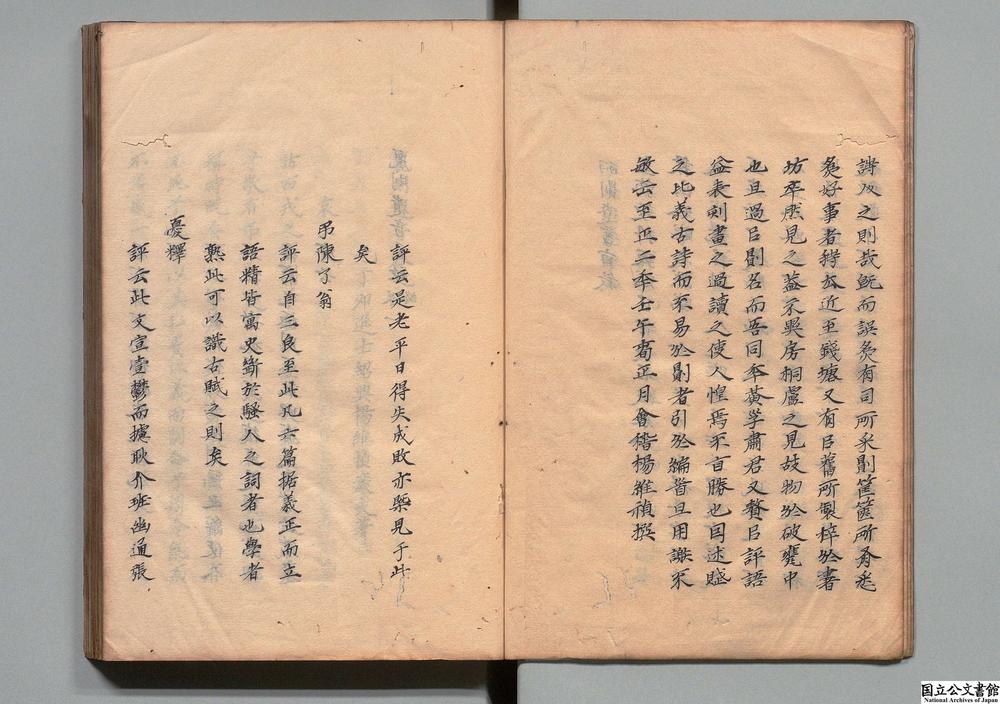 之則哉既而誤爲有司所采則筐篋所有悉
爲好事者持去近至錢塘又有㠯舊所製梓於書
坊卒然見之蓋不異房桐廬之見故物於破甕中
也且過㠯則名而吾同年黃子肅君又贅㠯評語
益表刻畫之過讀之使人惶焉不自勝也因述賦
之比義古詩而不易於則者引於編首且用謝不
敏云至正二年壬午春正月會稽楊維禎撰
評云是老平日得失成敗亦槩見于此
矣
弔陳了翁
評云自三良至此凡六篇据義正而立
語精皆寓史斷於騷人之詞者也學者
熟此可以識古賦之則矣
憂釋
評云此文宣壹鬱而攄耿介班幽通張
国立公文書館
National Archives of Japan